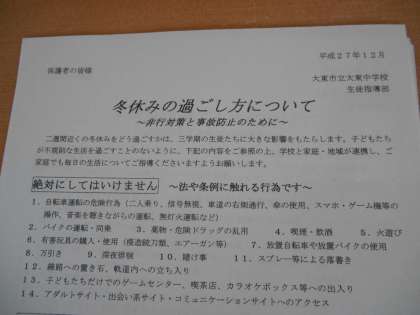 平成２７年１２月
保護者の皆様
大東市立大東中学校
生徒指導部
冬休みの過ごし方について
～非行対策と事故防止のために～
二週間近くの冬休みをどう過ごすかは、三学期の生徒たちに大きな影響をもたらします。子どもたち
が不規則な生活を過ごすことのないように、下記の内容をご参照の上、学校と家庭・地域が連携し、ご
家庭でも毎日の生活についてご指導くださいますようお願いします。
絶対にしてはいけません ～法や条例に触れる行為です～
１．自転車運転の危険行為（二人乗り、信号無視、車道の右側通行、傘の使用、スマホ・ゲーム機等の
操作、音楽を聴きながらの運転、無灯火運転など）
２．バイクの運転・同乗 ３．薬物・危険ドラッグの乱用 ４．喫煙・飲酒 ５．火遊び
６．有害玩具の購入・使用（模造銃刀類、エアーガン等） ７．放置自転車や放置バイクの使用
８．万引き ９．深夜徘徊 １０．賭け事 １１．スプレー等による落書き
１２．線路への置き石、軌道内への立ち入り
１３．子どもたちだけでのゲームセンター、喫茶店、カラオケボックス等への出入り
１４．アダルトサイト・出会い系サイト・コミュニケーションサイトへのアクセス